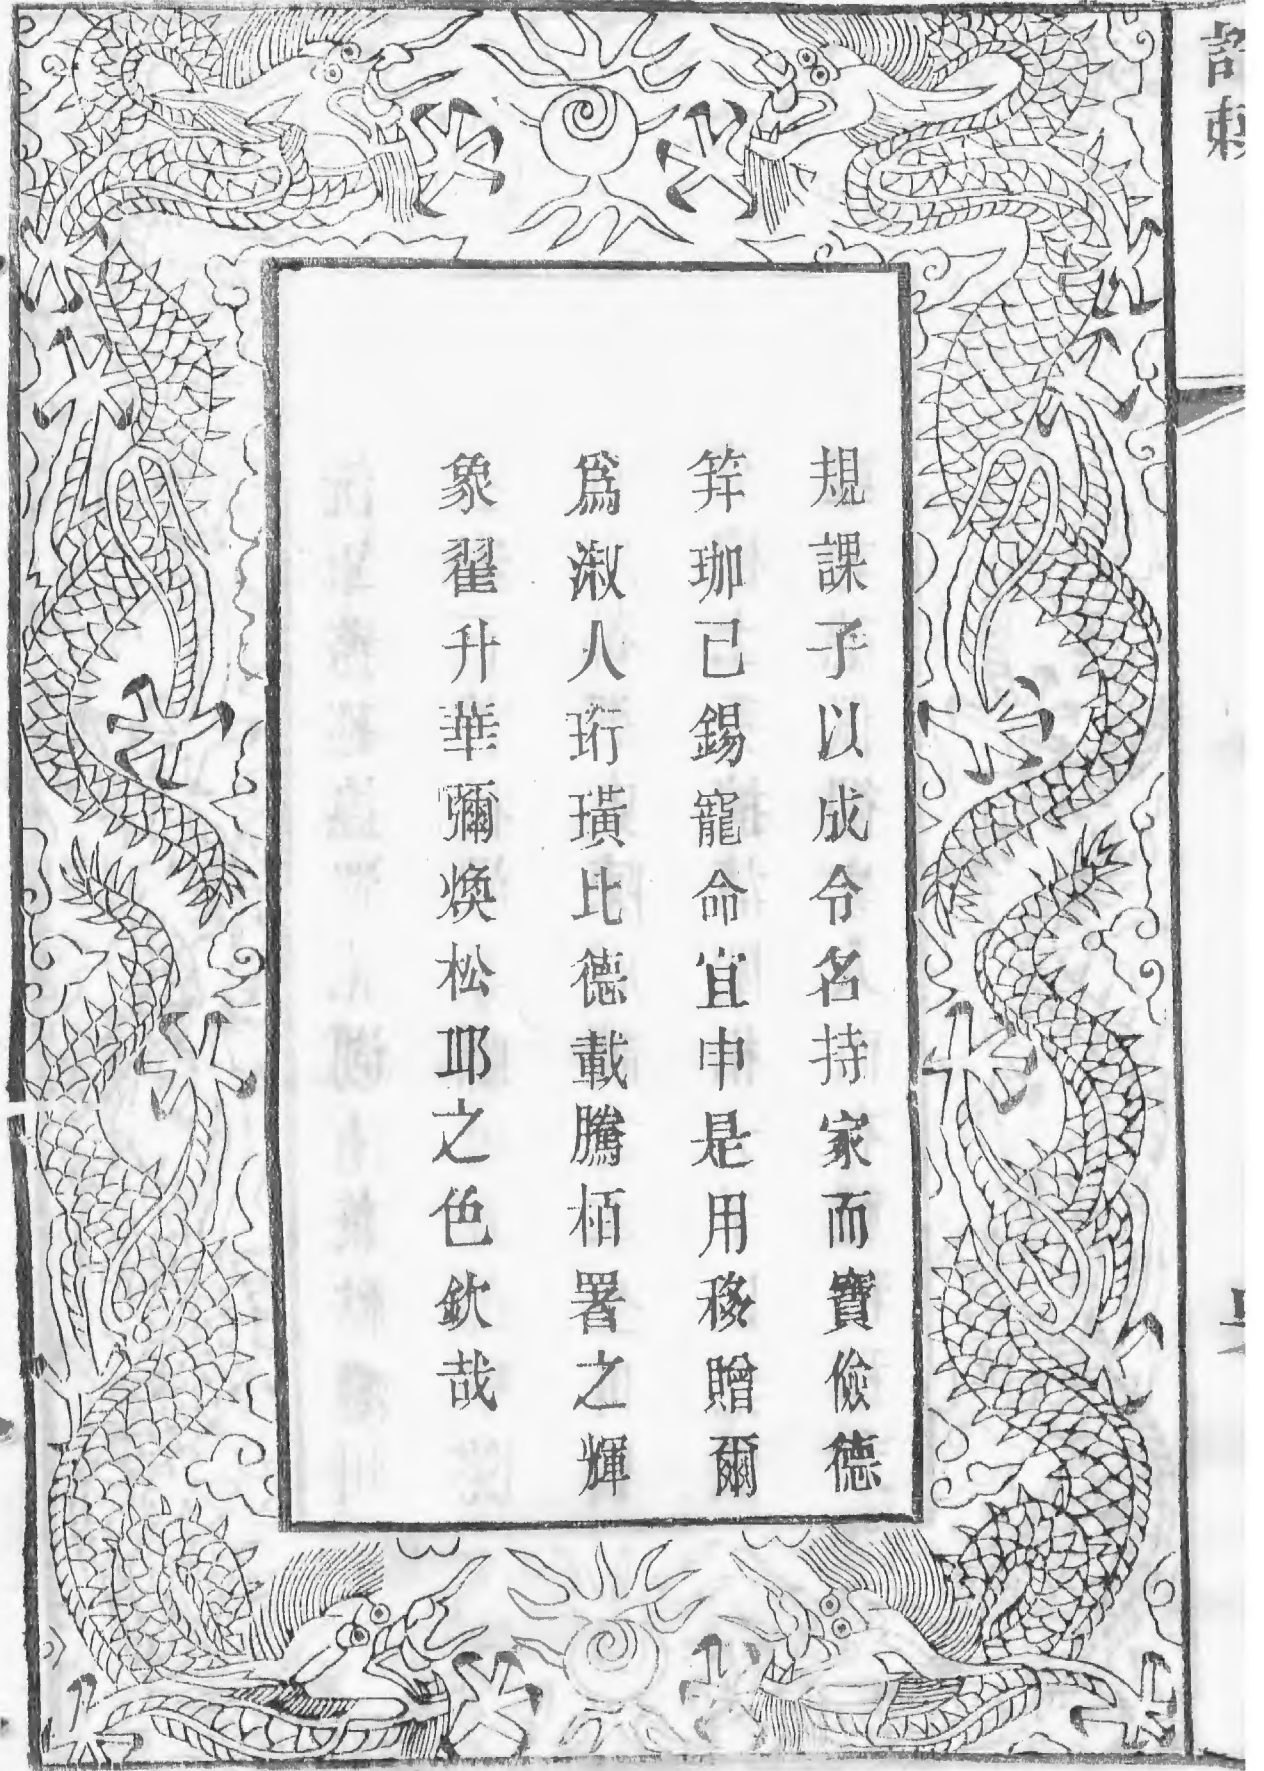 規課子以成令名持家而寶儉德
筓珈已錫寵命宜申是用移贈爾
爲淑人珩璜比德載騰栢署之輝
象翟升華彌煥松邱之色欽哉
誥敕